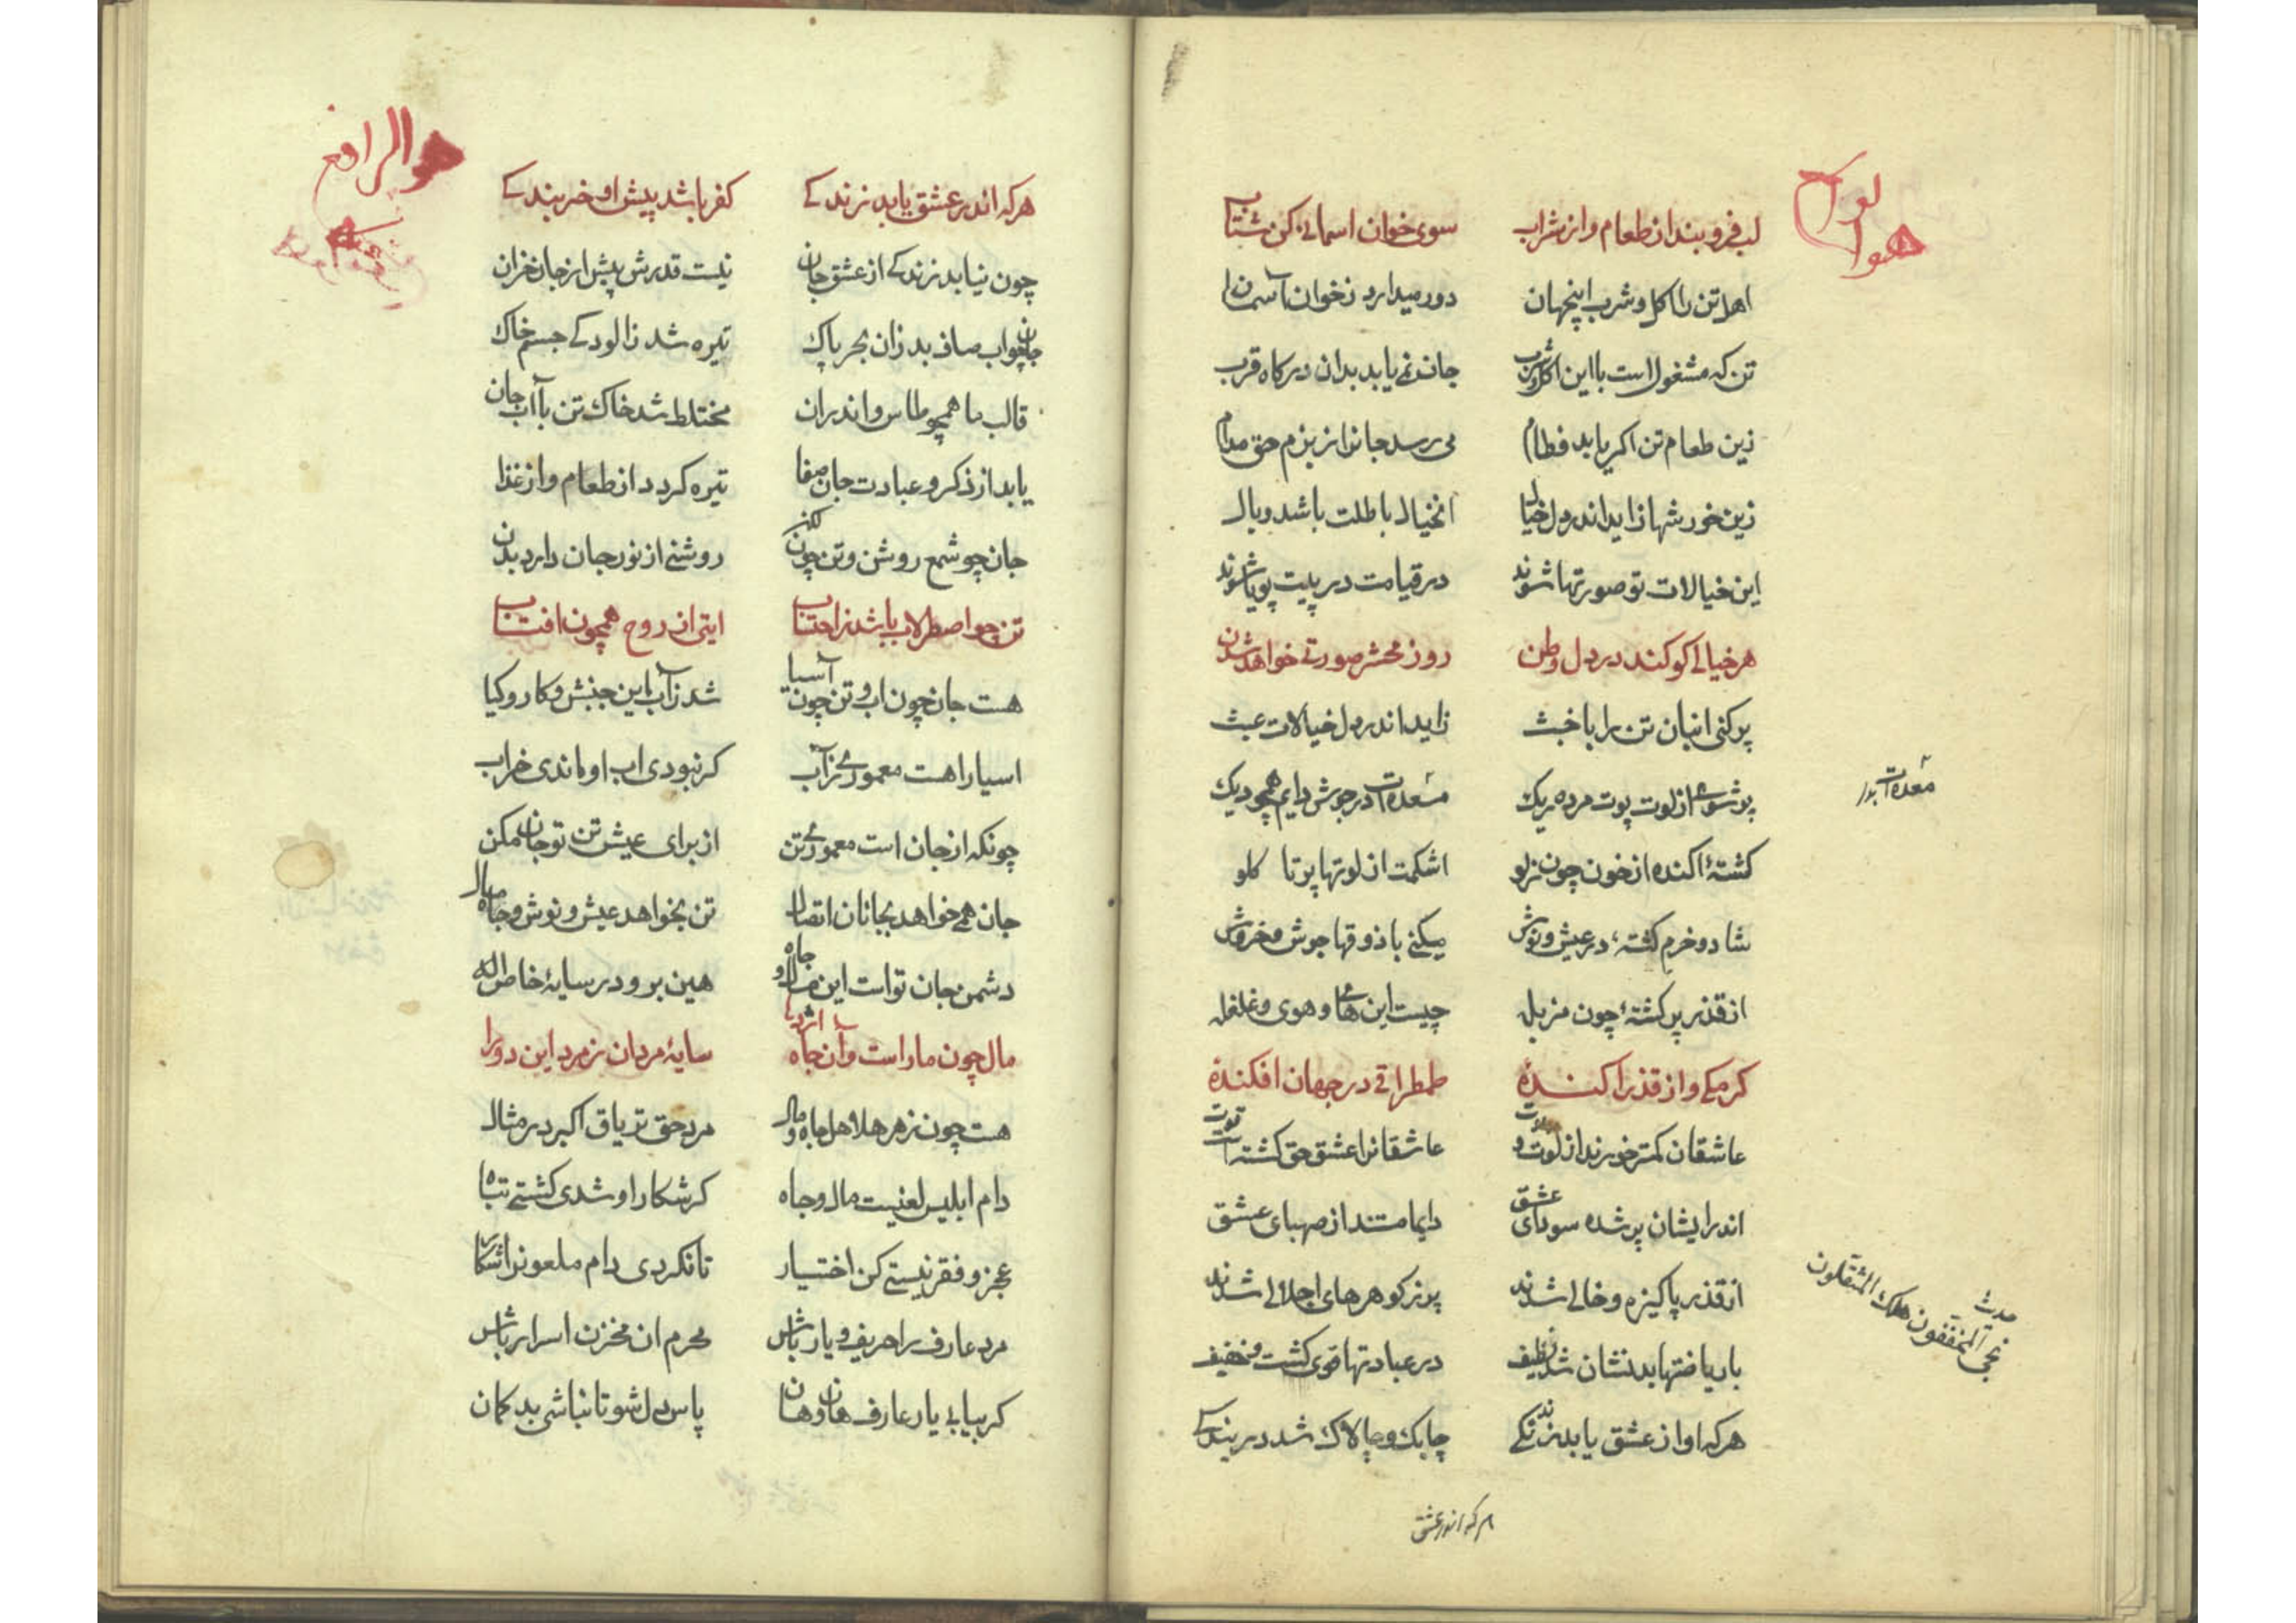 لب فرو بند از طعام و از شراب سوی خوان اسمانی کن شتاب
اهل تن را اکل و شرب اینجهان دور میدارد زخوان آسمان
تن که مشغول است با این اکل و شرب جان نمی یابد بدان درکاه قرب
زین طعام تن اکر یابد فطام می رسد جانرا ز بزم حق مدام
زین خورشها زاید اندر دل خیال انخیال باطلت باشد وبال
این خیالات تو صورتها شوند در قیامت در پیت پویا شوند
هر خیالی کو کند در دل وطن روز محشر صورتی خواهد شدن
پر کنی انبان تن را با خبث زاید اندر دل خیالات عبث
پر شوی از لوت پوت مرده ریک معده ات در جوش دایم همچو دیک
معده ات بدر
کشتهٔ اکنده از خون چون زلو اشکمت از لوتها پر تا کلو
شاد و خرم کشتهٔ در عیش و نوش میکنی با ذوقها جوش و خروش
از قذر پر کشتهٔ چون مزبله چیست این های و هوی و غلغله
کرمکی و از قذر اکندهٔ طمطراقی در جهان افکندهٔ
عاشقان کمتر خورند از لوت و پوت عاشقانرا عشق حق کشته است قوت
اندر ایشان پر شده سودای عشق دایما مستند از صهبای عشق
از قذر پاکیزه و خالی شدند پر ز کوهرهای اجلالی شدند
حدیث
نجی المخففون هلک المثقلون
با ریاضتها بدنشان شد نظیف در عبادتها قوی کشت و خفیف
هر که او از عشق یابد زندکی چابک و چالاک شد در بندکی
هر که اندر عشق
هو الرافع
هرکه اندر عشق یابد زندکی کفر باشد پیش او خر بندکی
چون نیابد زندکی از عشق جان نیست قدرش پیش از جان خران
جان چو اب صاف بد زان بحر پاک تیره شد زالودکی جسم خاک
قالب ما همچو طاس و اندران مختلط شد خاک تن با آب جان
یابد از ذکر و عبادت جان صفا تیره کردد از طعام و از غذا
جان چو شمع روشن و تن چون لکن روشنی از نور جان دارد بدن
تن چو اصطرلاب باشد ز احتساب ایتی از روح همچون افتاب
هست جان چون اب و تن چون آسیا شد ز آب این جنبش و کار و کیا
اسیا را هست معموری ز آب کر نبودی اب او ماندی خراب
چونکه از جان است معموری تن از برای عیش تن تو جان مکن
جان همی خواهد بجانان اتصال تن بخواهد عیش و نوش و جاه و مال
دشمن جان تو است این مال و جاه هین برو در سایهٔ خاص اله
مال چون مار است و آن جاه اژدها سایهٔ مردان زمرد این دو را
هست چون زهر هلاهل جاه و مال مرد حق تریاق اکبر در مثال
دام ابلیس لعینست مال و جاه کر شکار او شدی کشتی تباه
عجز و فقر و نیستی کن اختیار تا نکردی دام ملعونرا شکار
مرد عارف را حریف و یار باش محرم ان مخزن اسرار باش
کر بیابی یار عارف هان و هان پاس دل شو تا نباشی بد کمان